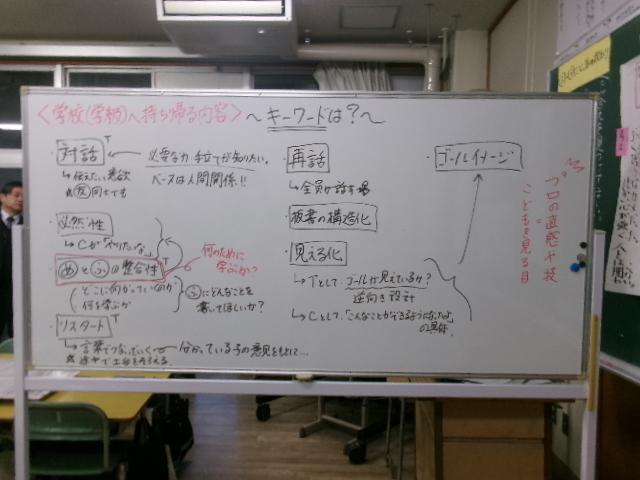 <学校(学級)へ持ち帰る内容> ～キーワードは?～
対話 T ← 必要な力・手立てが知りたい。
↳ 伝えたい意欲 ベースは人間関係!!
必然性
↳ Cが「やりたいな」
めとふの整合性 T 何のために
学ぶか?
(どこに向かっているのか
何を学ぶか)
ふにどんなことを
書いてほしいか?
リスタート T
↳ 言葉でつないでいく 分かっている子の意見をもとに…
再話
↳ 全員が話す場
板書の構造化
見える化
↳ Tとして、ゴールが見えているか?
逆向き設計
↳ Cとして、「こんなことができるようになったよ」
の具体
・ゴールイメージ
プロの直感や技
こどもを見る目